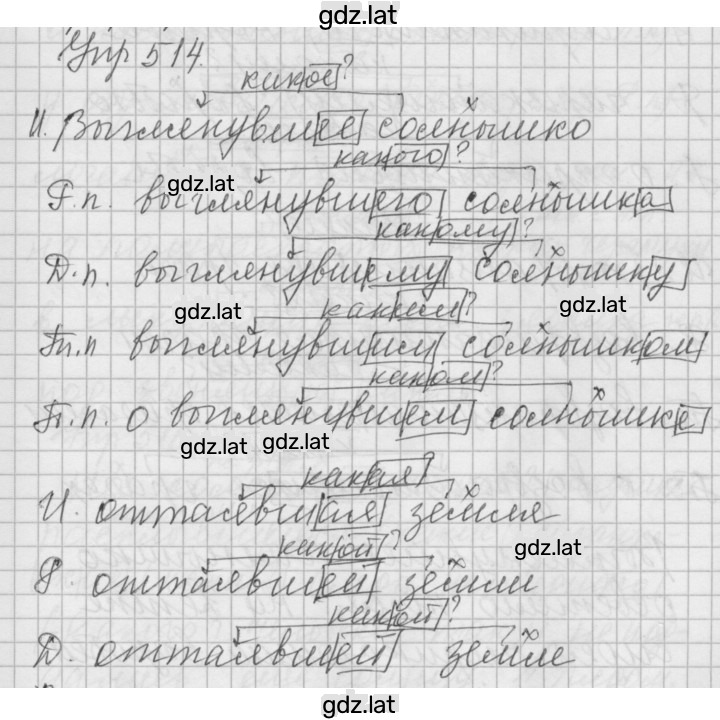 gdz.lat
Упр 514.
какое?
И. Выглянувшее солнышко
какого?
Р.п. выглянувшего солнышка
gdz.lat
какому?
Д.п. выглянувшему солнышку
gdz.lat
gdz.lat
каким?
Тп.п выглянувшим солнышком
каком?
П.п. о выглянувшем солнышке
gdz.lat gdz.lat
какая?
И. оттаявшая земля
gdz.lat
какой?
Р. оттаявшей земли
какой?
Д. оттаявшей земле
gdz.lat